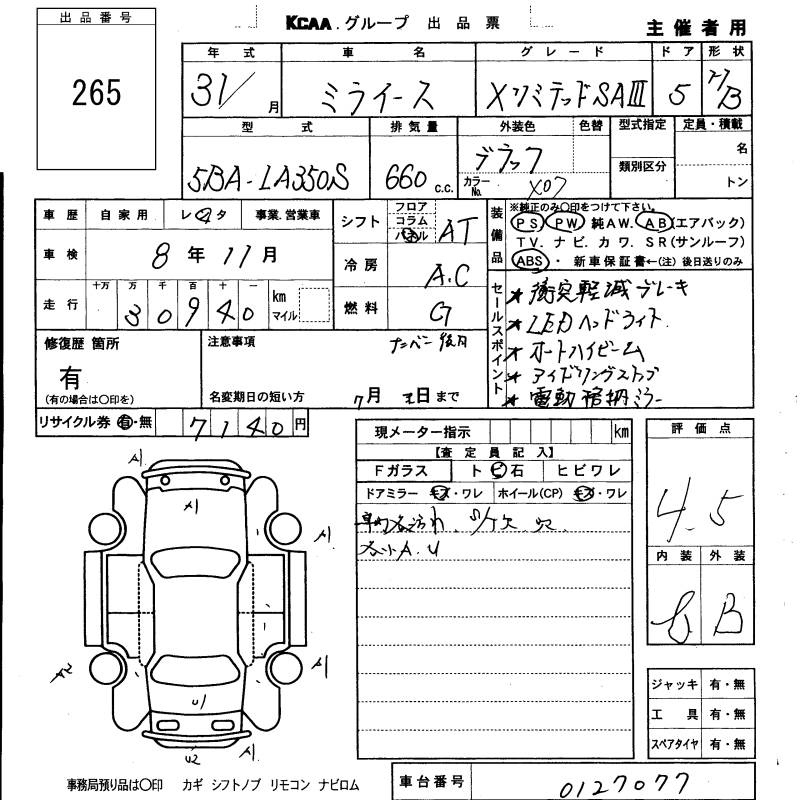 出品番号
265
KCAA.グループ 出品票
主催者用
年式 車名 グレード ドア 形状
31/ 月 ミライース XリミテッドSAIII 5 H/B
型式 排気量 外装色 色替 型式指定 定員・積載
5BA-LA350S 660 c.c. ブラック 名
カラーNo. X07 類別区分 トン
車歴 自家用 レンタ 事業.営業車
車検 8年11月
走行 十万 万 千 百 十 一
30940 km マイル
シフト フロア コラム パネル AT
冷房 A.C
燃料 G
装備品
※純正のみ〇印をつけて下さい。
PS PW 純AW. AB(エアバック)
TV. ナビ. カワ. SR(サンルーフ)
ABS . 新車保証書←(注) 後日送りのみ
セールスポイント
★衝突軽減ブレーキ
★LEDヘッドライト
★オートハイビーム
★アイドリングストップ
★電動格納ミラー
修復歴 箇所
有
(有の場合は〇印を)
注意事項
ナンバー後日
名変期日の短い方 7月 日まで
リサイクル券 有・無 7140円
現メーター指示 km
【査定員記入】
Fガラス トビ石 ヒビワレ
ドアミラー キズ・ワレ ホイール(CP) キズ・ワレ
A.U
評価点
4.5
内装 外装
B
A1
A1
A1
A1
A2
U1
U2
A1
ジャッキ 有・無
工具 有・無
スペアタイヤ 有・無
事務局預り品は〇印 カギ シフトノブ リモコン ナビロム
車台番号 0127077